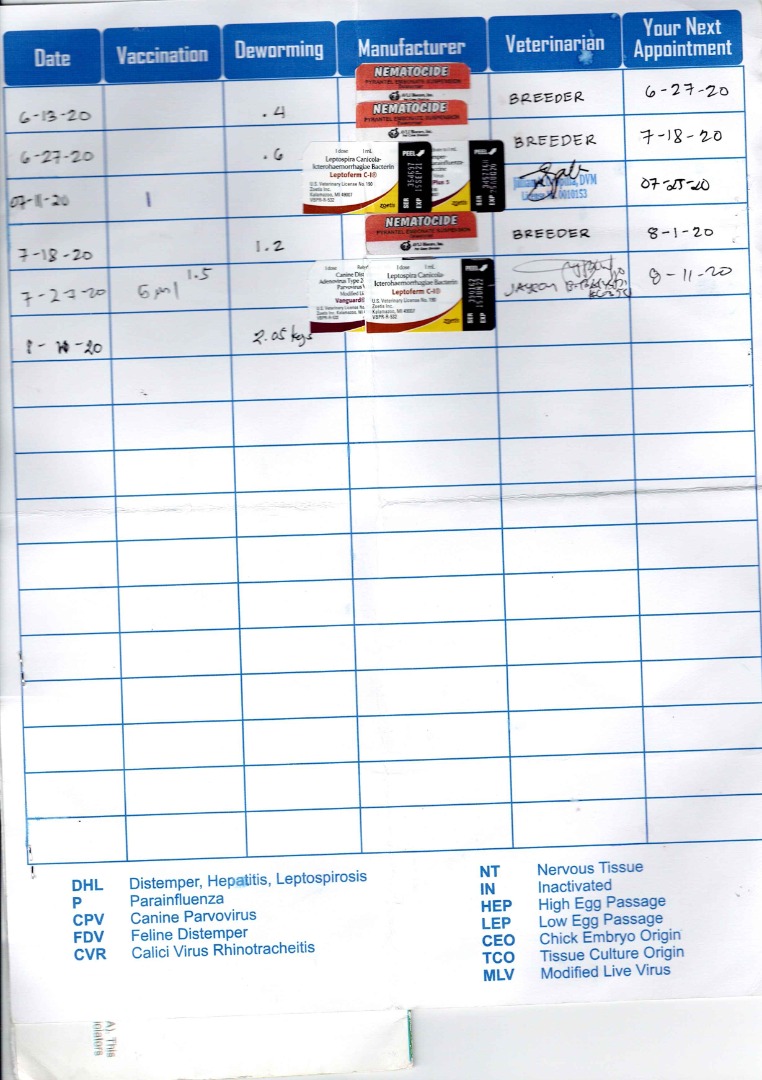 Date Vaccination Deworming Manufacturer Veterinarian Your Next Appointment
NEMATOCIDE
PYRANTEL EMBONATE SUSPENSION
6-13-20 .4 BREEDER 6-27-20
NEMATOCIDE
PYRANTEL EMBONATE SUSPENSION
6-27-20 .6 BREEDER 7-18-20
1 dose 1 mL
Leptospira Canicola-
Icterohaemorrhagiae Bacterin
Leptoferm C-I®
U.S. Veterinary License No. 190
Zoetis Inc.
Kalamazoo, MI 49007
VBPR-R-532
zoetis
PEEL
SER
EXP 15SEP21
Plus 5
PEEL
SER
EXP
07-11-20 1 DVM 07-25-20
License No. 0010153
NEMATOCIDE
PYRANTEL EMBONATE SUSPENSION
7-18-20 1.2 BREEDER 8-1-20
1 dose
Canine Dis
Adenovirus Type 2
Parvovirus
Modified Li
Vanguard®
U.S. Veterinary License No.
Zoetis Inc.
Kalamazoo, MI
VBPR-R-532
1 dose 1 mL
Leptospira Canicola-
Icterohaemorrhagiae Bacterin
Leptoferm C-I®
U.S. Veterinary License No. 190
Zoetis Inc.
Kalamazoo, MI 49007
VBPR-R-532
zoetis
PEEL
SER
EXP
5 in 1 1.5 8-11-20
2.05 kgs
DHL Distemper, Hepatitis, Leptospirosis
P Parainfluenza
CPV Canine Parvovirus
FDV Feline Distemper
CVR Calici Virus Rhinotracheitis
NT Nervous Tissue
IN Inactivated
HEP High Egg Passage
LEP Low Egg Passage
CEO Chick Embryo Origin
TCO Tissue Culture Origin
MLV Modified Live Virus
A). This
iolators